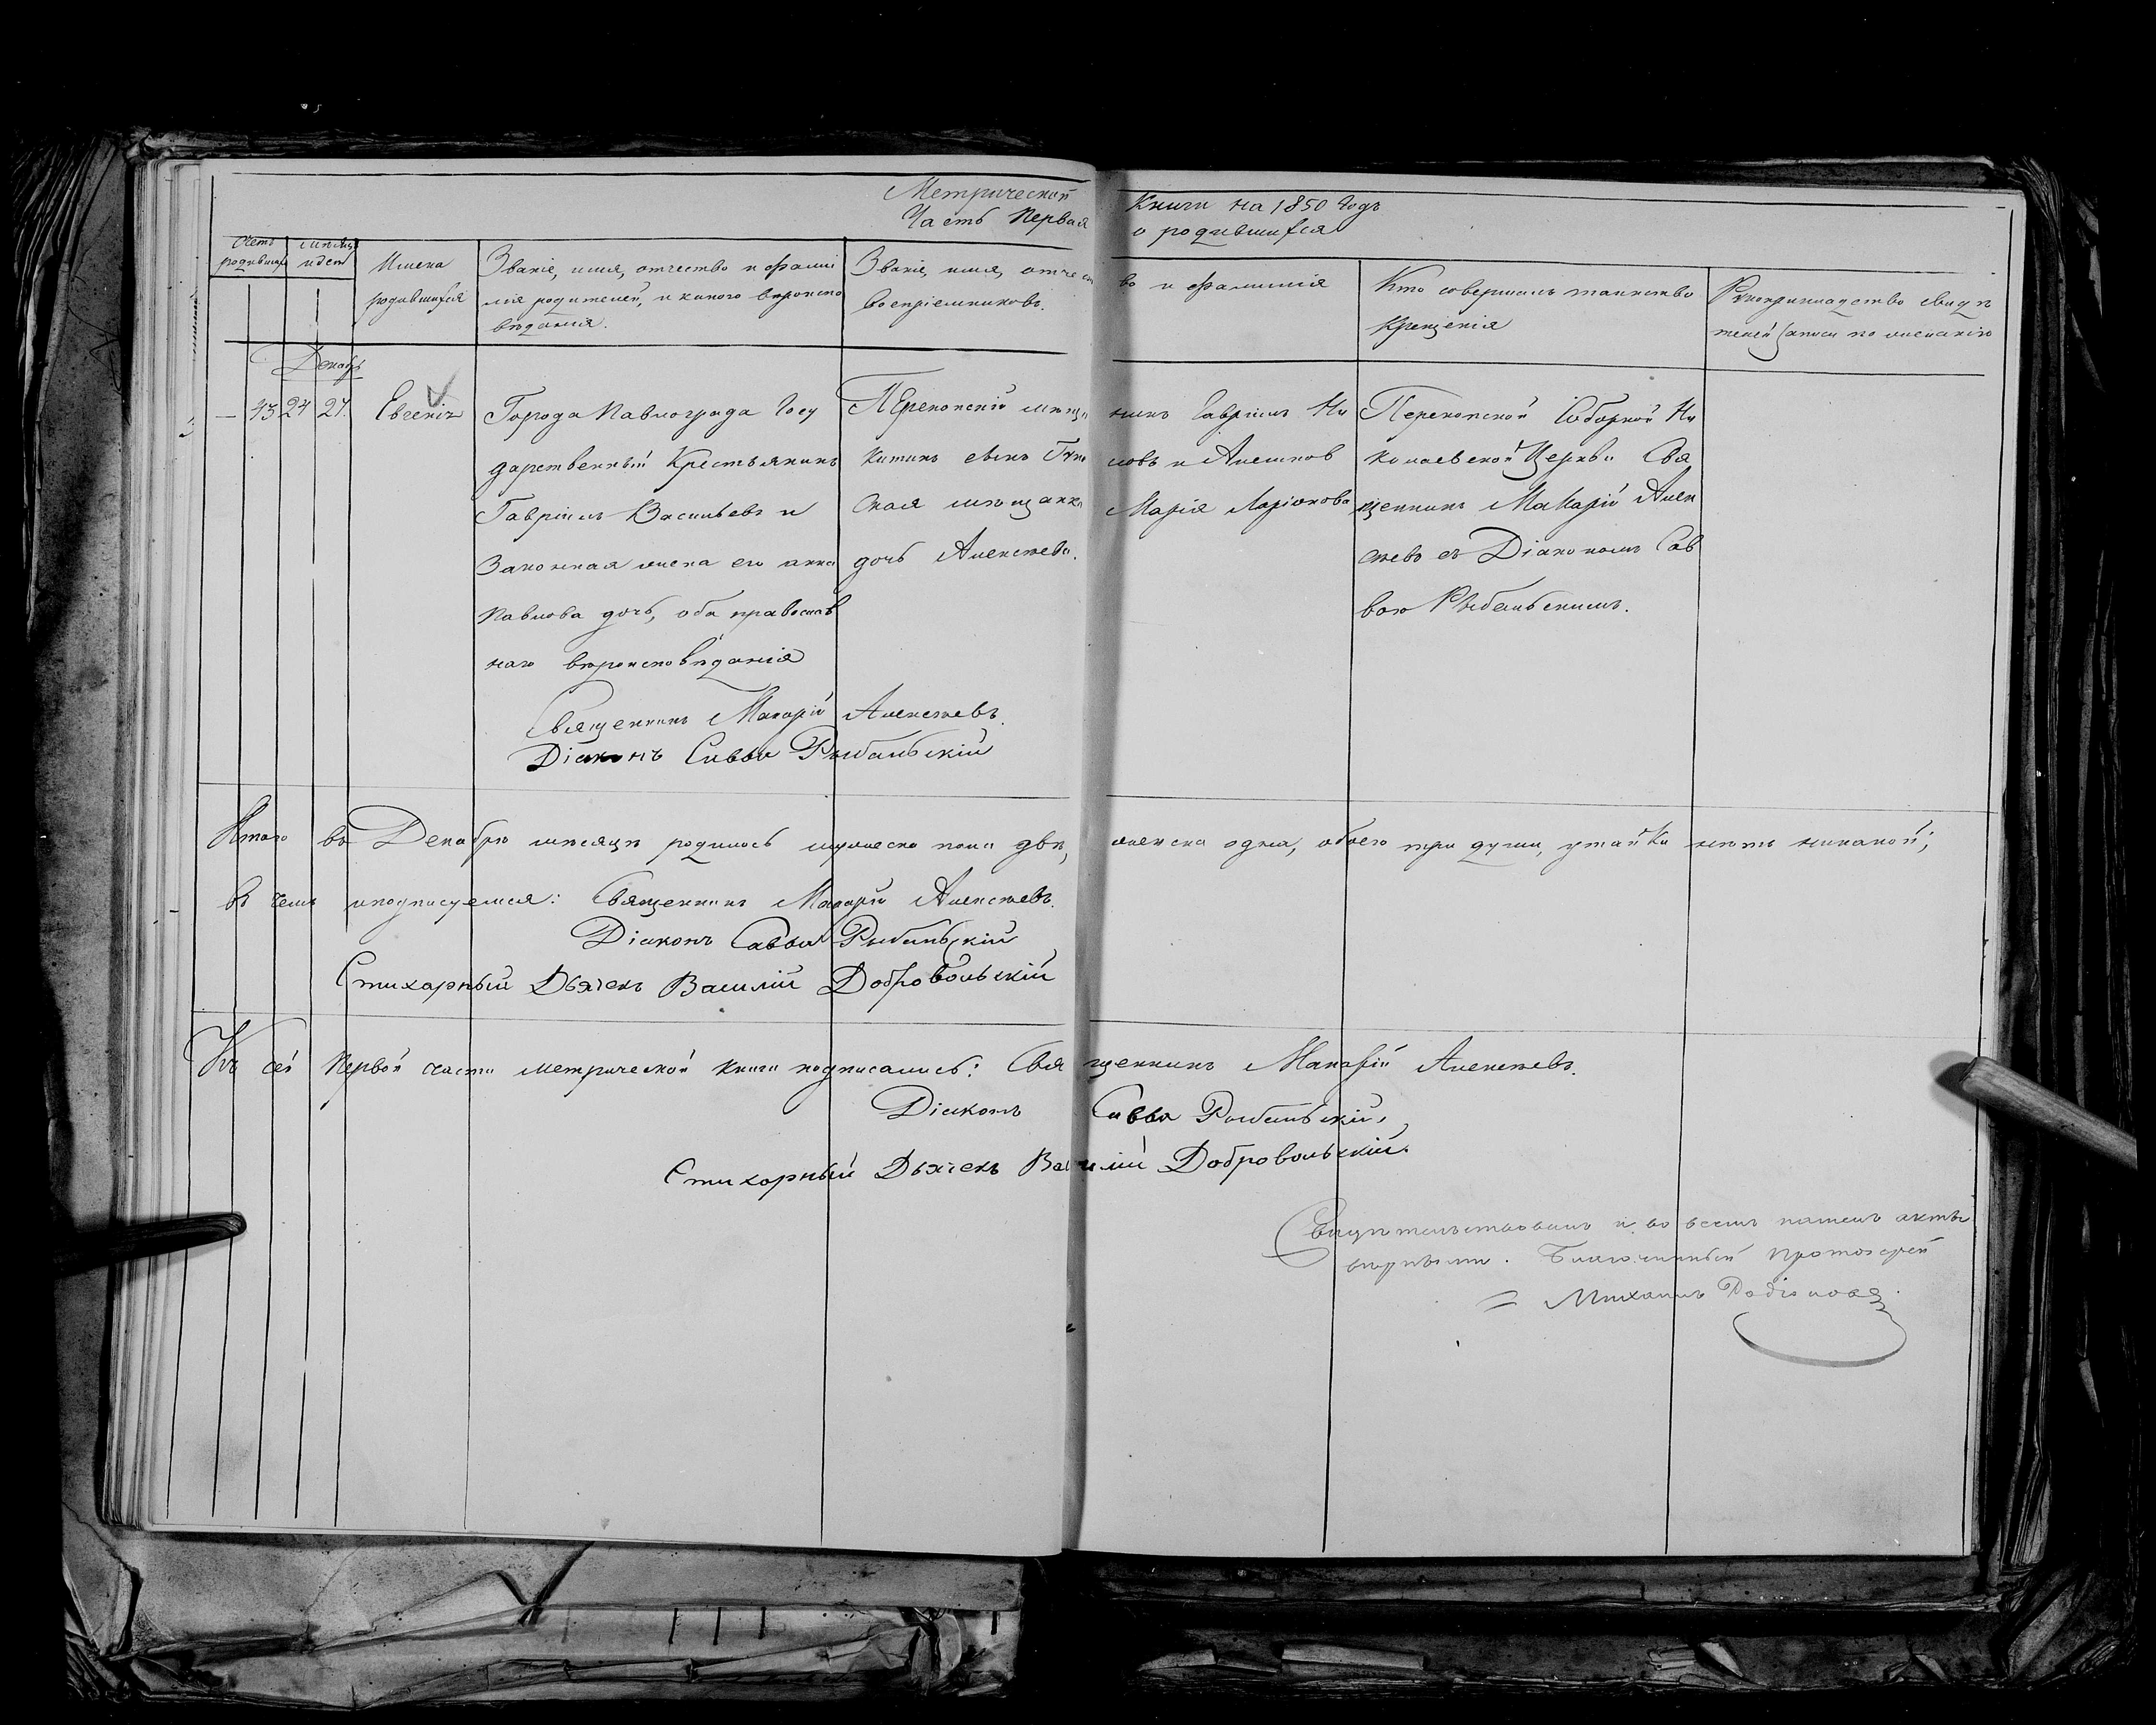 Метрической Книги на 1850 Годъ
Часть Первая о родившихся
Счетъ родившихся
мѣсяцъ и день
Имена
родившихся
Званіе, имя, отчество и фами
лія родителей, и какого вѣроиспо
вѣданія.
Званіе, имя, отчест
во и фамилія
воспріемниковъ.
Кто совершалъ таинство
Крещенія
Рукоприкладство свидѣ
телей записи по желанію
Декабрь
— 43 24 27. Евгенія
Города Павлограда Госу
дарственный Крестьянинъ
Гавріилъ Васильевъ и
Законная жена его анна
Павлова дочь, оба православ
наго вѣроисповѣданія
Перекопскій мѣща
нинъ Гавріилъ Ни
китинъ сынъ
и Алешков
ская мѣщанка
Марія Ларіонова
дочь Алексѣева.
Перекопской Соборной Ни
колаевской Церкви Свя
щенникъ Макарій Алек
сѣевъ съ Діакономъ Сав
вою Рыбальскимъ.
Священникъ Макарій Алексѣевъ.
Діаконъ Савва Рыбальскій
Итого въ Декабрѣ мѣсяцѣ родилось мужеска пола двѣ, женска одна, обоего три души, утайки нѣтъ никакой;
въ чемъ и подписуемся: Священникъ Макарій Алексѣевъ.
Діаконъ Савва Рыбальскій
Стихарный Дьячекъ Василій Добровольскій
Къ сей Первой части метрической книги подписались: Священникъ Макарій Алексѣевъ.
Діаконъ Савва Рыбальскій,
Стихарный Дьячекъ Василій Добровольскій.
Свидѣтельствовалъ и во всемъ нашелъ актъ
вѣрнымъ. Благочинный Протоіерей
Михаилъ Родіоновъ